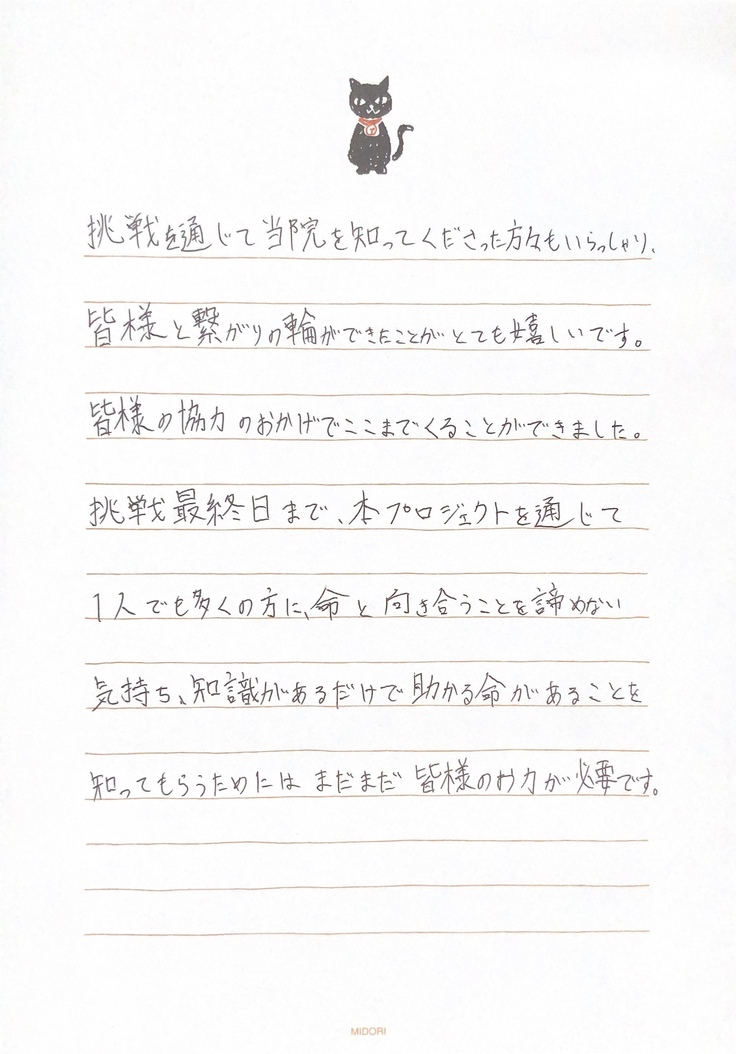 挑戦を通じて当院を知ってくださった方々もいらっしゃり、
皆様と繋がりの輪ができたことがとても嬉しいです。
皆様の協力のおかげでここまでくることができました。
挑戦最終日まで、本プロジェクトを通じて
1人でも多くの方に、命と向き合うことを諦めない
気持ち、知識があるだけで助かる命があることを
知ってもらうためには まだまだ 皆様のお力が必要です。
MIDORI